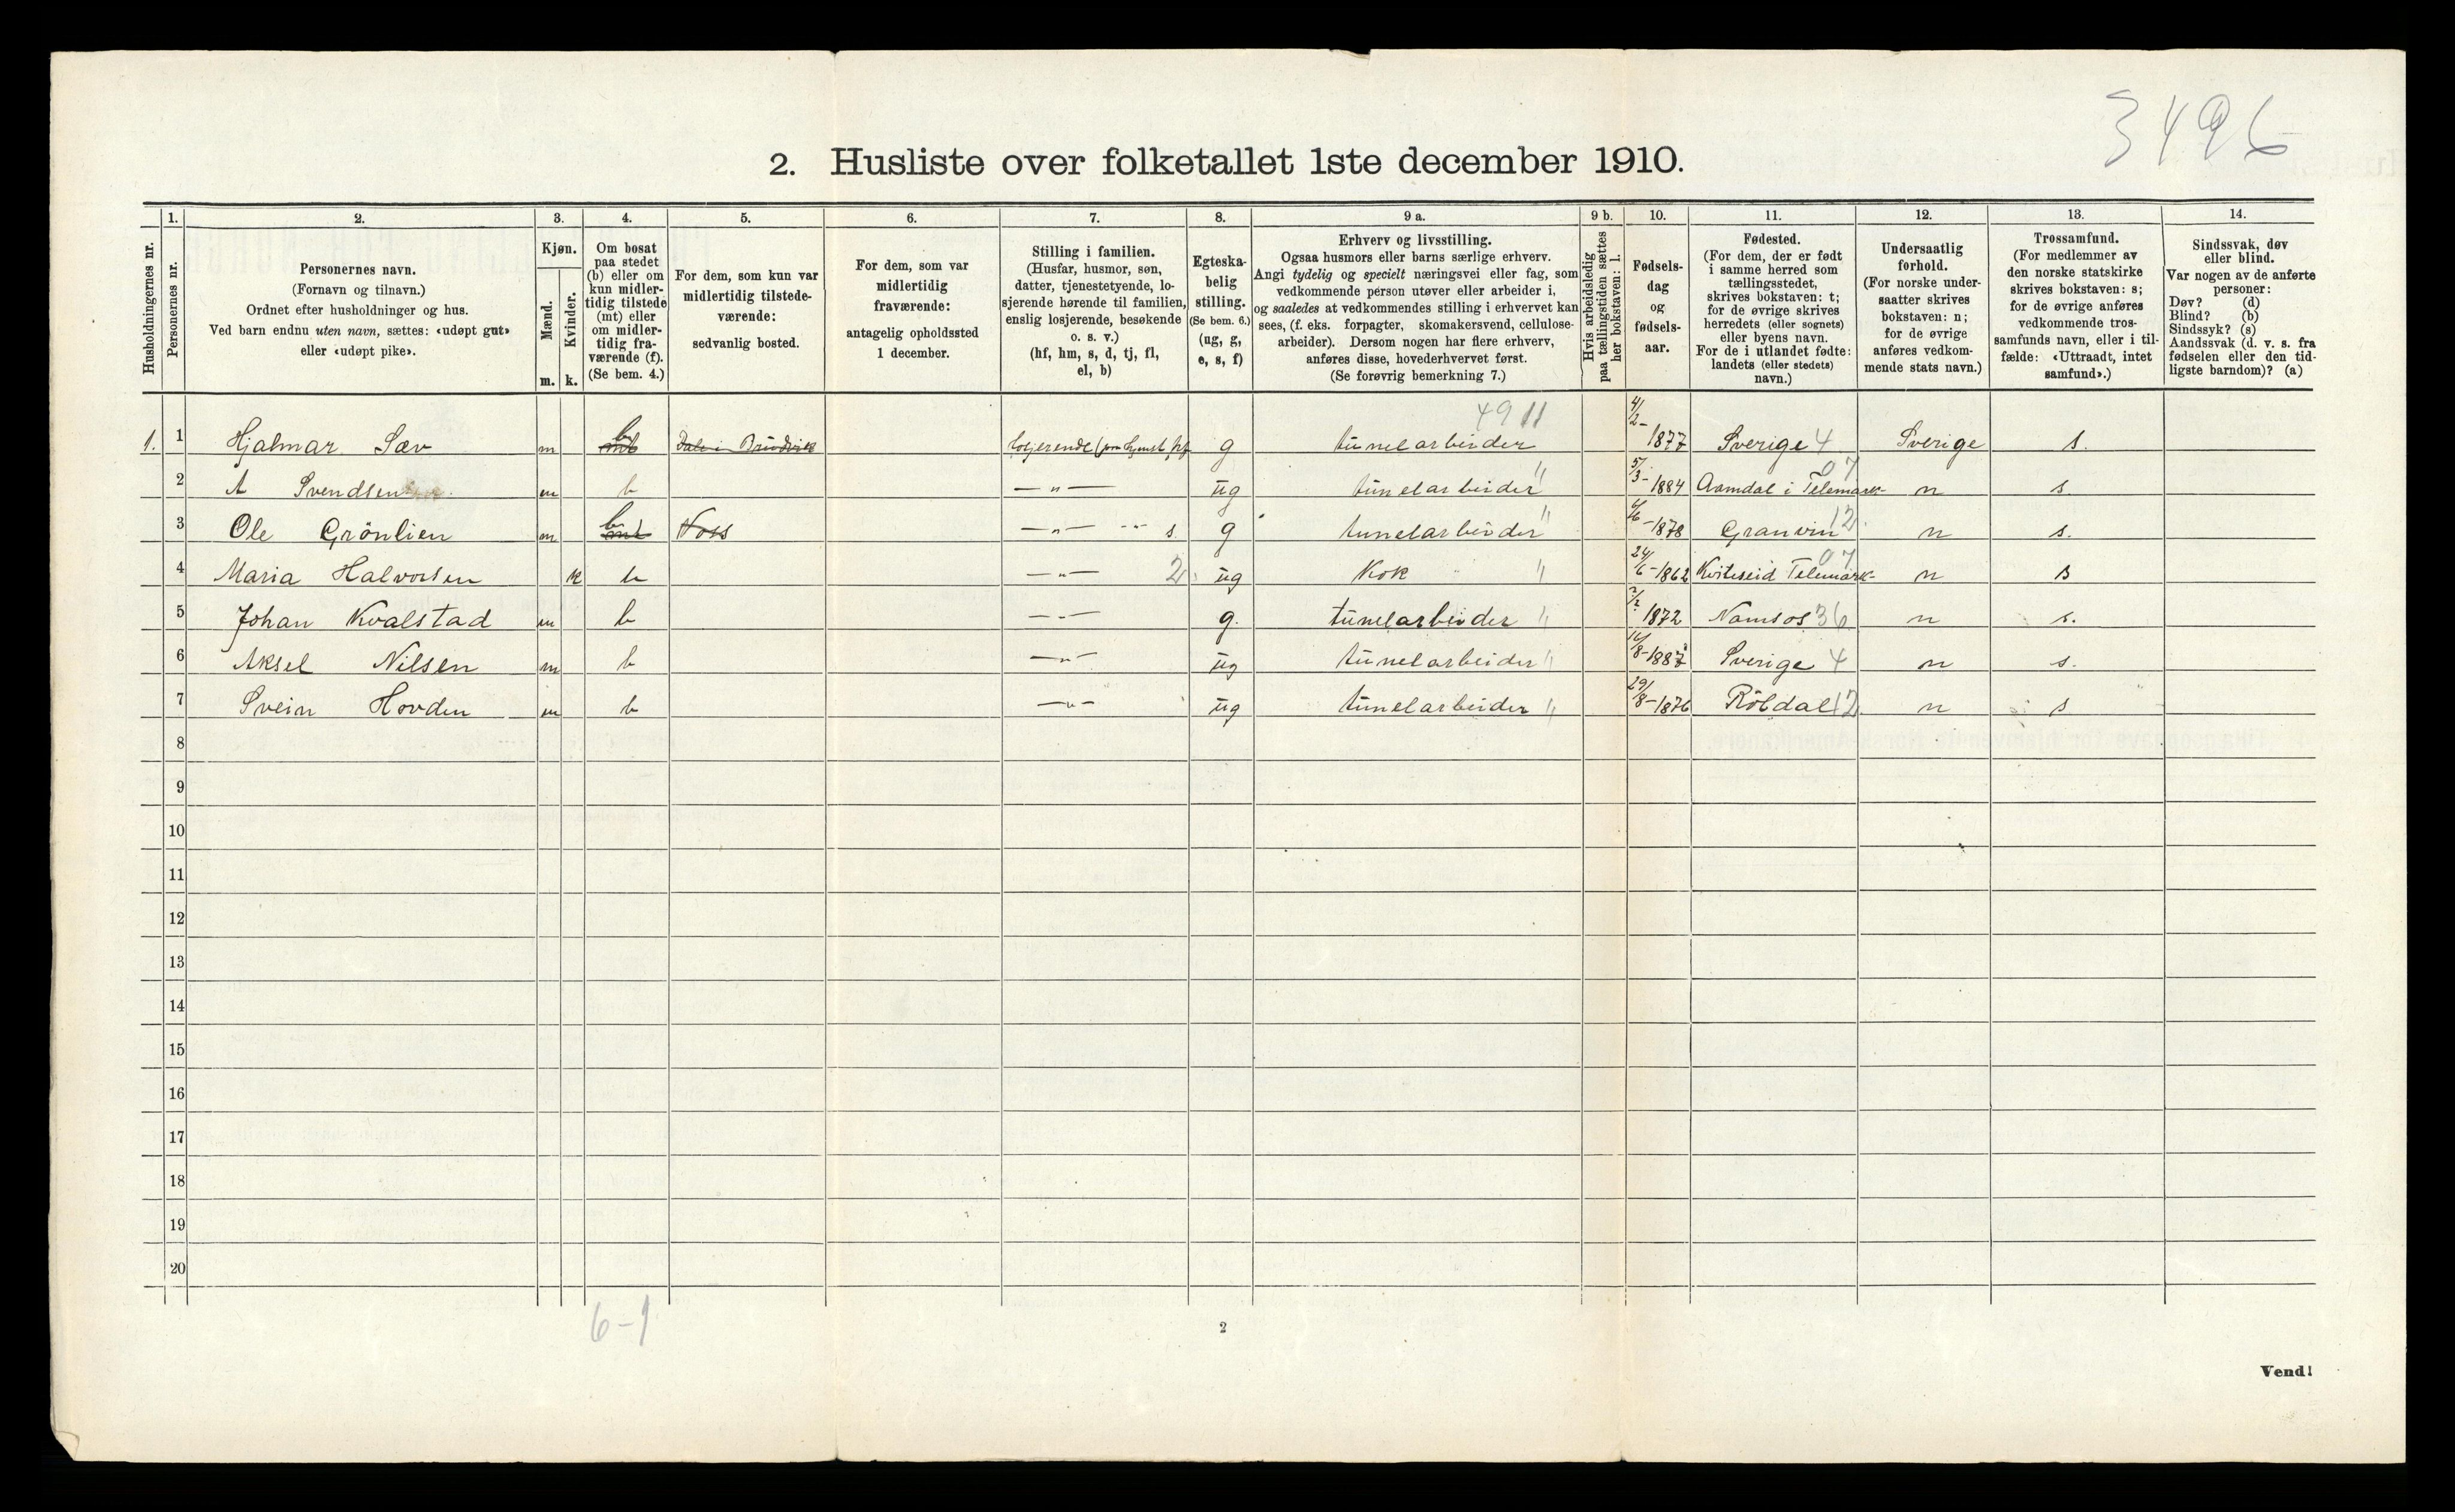 3496
2. Husliste over folketallet 1ste december 1910.
Husholdningernes nr.
1.
Personernes nr.
2.
Personernes navn.
(Fornavn og tilnavn.)
Ordnet efter husholdninger og hus.
Ved barn endnu uten navn, sættes: «udøpt gut»
eller «udøpt pike».
3.
Kjøn.
Mænd.
Kvinder.
m. k.
4.
Om bosat
paa stedet
(b) eller om
kun midler-
tidig tilstede
(mt) eller
om midler-
tidig fra-
værende (f).
(Se bem. 4.)
5.
For dem, som kun var
midlertidig tilstede-
værende:
sedvanlig bosted.
6.
For dem, som var
midlertidig
fraværende:
antagelig opholdssted
1 december.
7.
Stilling i familien.
(Husfar, husmor, søn,
datter, tjenestetyende, lo-
sjerende hørende til familien,
enslig losjerende, besøkende
o. s. v.)
(hf, hm, s, d, tj, fl,
el, b)
8.
Egteska-
belig
stilling.
(Se bem. 6.)
(ug, g,
e, s, f)
9 a.
Erhverv og livsstilling.
Ogsaa husmors eller barns særlige erhverv.
Angi tydelig og specielt næringsvei eller fag, som
vedkommende person utøver eller arbeider i,
og saaledes at vedkommendes stilling i erhvervet kan
sees, (f. eks. forpagter, skomakersvend, cellulose-
arbeider). Dersom nogen har flere erhverv,
anføres disse, hovederhvervet først.
(Se forøvrig bemerkning 7.)
9 b.
Hvis arbeidsledig
paa tællingstiden sættes
her bokstaven: l.
10.
Fødsels-
dag
og
fødsels-
aar.
11.
Fødested.
(For dem, der er født
i samme herred som
tællingsstedet,
skrives bokstaven: t;
for de øvrige skrives
herredets (eller sognets)
eller byens navn.
For de i utlandet fødte:
landets (eller stedets)
navn.)
12.
Undersaatlig
forhold.
(For norske under-
saatter skrives
bokstaven: n;
for de øvrige
anføres vedkom-
mende stats navn.)
13.
Trossamfund.
(For medlemmer av
den norske statskirke
skrives bokstaven: s;
for de øvrige anføres
vedkommende tros-
samfunds navn, eller i til-
fælde: «Uttraadt, intet
samfund».)
14.
Sindssvak, døv
eller blind.
Var nogen av de anførte
personer:
Døv? (d)
Blind? (b)
Sindssyk? (s)
Aandssvak (d. v. s. fra
fødselen eller den tid-
ligste barndom)? (a)
4911
1. 1 Hjalmar Sæv m b mt Dale i Bruvik losjerende g tunelarbeider 4/2-1877 Sverige 4 Sverige s.
2 A Svendsen m b —„— ug tunelarbeider " 5/3-1884 Aamdal i Telemark- 07 n s
3 Ole Grönlien m b mt Voss —„— s. g tunelarbeider " 1878 Granvin 12 n s.
4 Maria Halvorsen k b —„— 2 ug Kok " 24/6-1862 Kviteseid Telemark- 07 n s
5 Johan Kvalstad m b —„— g. tunelarbeider " 1872 Namsos 36 n s.
6 Aksel Nilsen m b —„— ug tunelarbeider " 1887 Sverige 4 n s.
7 Svein Hovden m b —„— ug tunelarbeider " 29/8-1876 Röldal 12 n s
8
9
10
11
12
13
14
15
16
17
18
19
20
6-1
2
Vend!